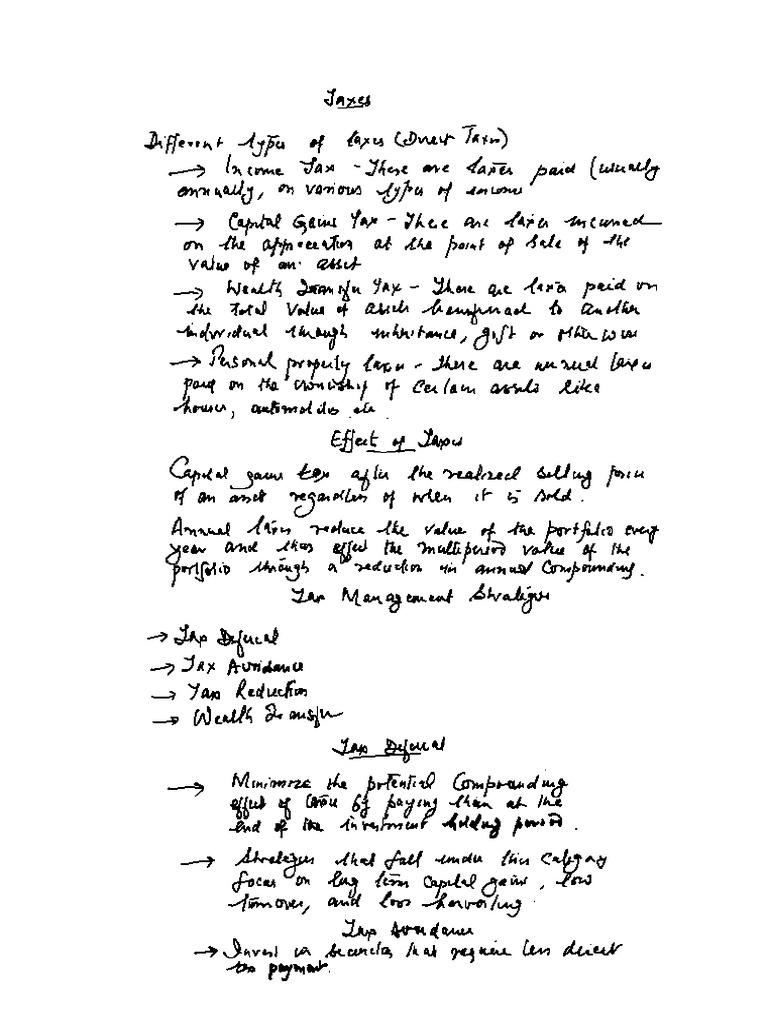 Taxes
Different types of taxes (Direct Taxes)
→ Income Tax - These are taxes paid (usually
annually, on various types of income
→ Capital Gains Tax - These are taxes incurred
on the appreciation at the point of sale of the
value of an asset
→ Wealth Transfer Tax - These are taxes paid on
the total value of assets transferred to another
individual through inheritance, gift or otherwise
→ Personal property taxes - These are annual taxes
paid on the ownership of certain assets like
houses, automobiles etc.
Effect of Taxes
Capital gains tax after the realized selling price
of an asset regardless of when it is sold.
Annual taxes reduce the value of the portfolio every
year and thus effect the multiperiod value of the
portfolio through a reduction in annual compounding.
Tax Management Strategies
→ Tax Deferral
→ Tax Avoidance
→ Tax Reduction
→ Wealth Transfer
Tax Deferral
→ Minimize the potential compounding
effect of taxes by paying them at the
end of the investment holding period.
→ Strategies that fall under this category
focus on long term capital gains, low
turnover, and loss harvesting.
Tax Avoidance
→ Invest in securities that require less direct
tax payment.